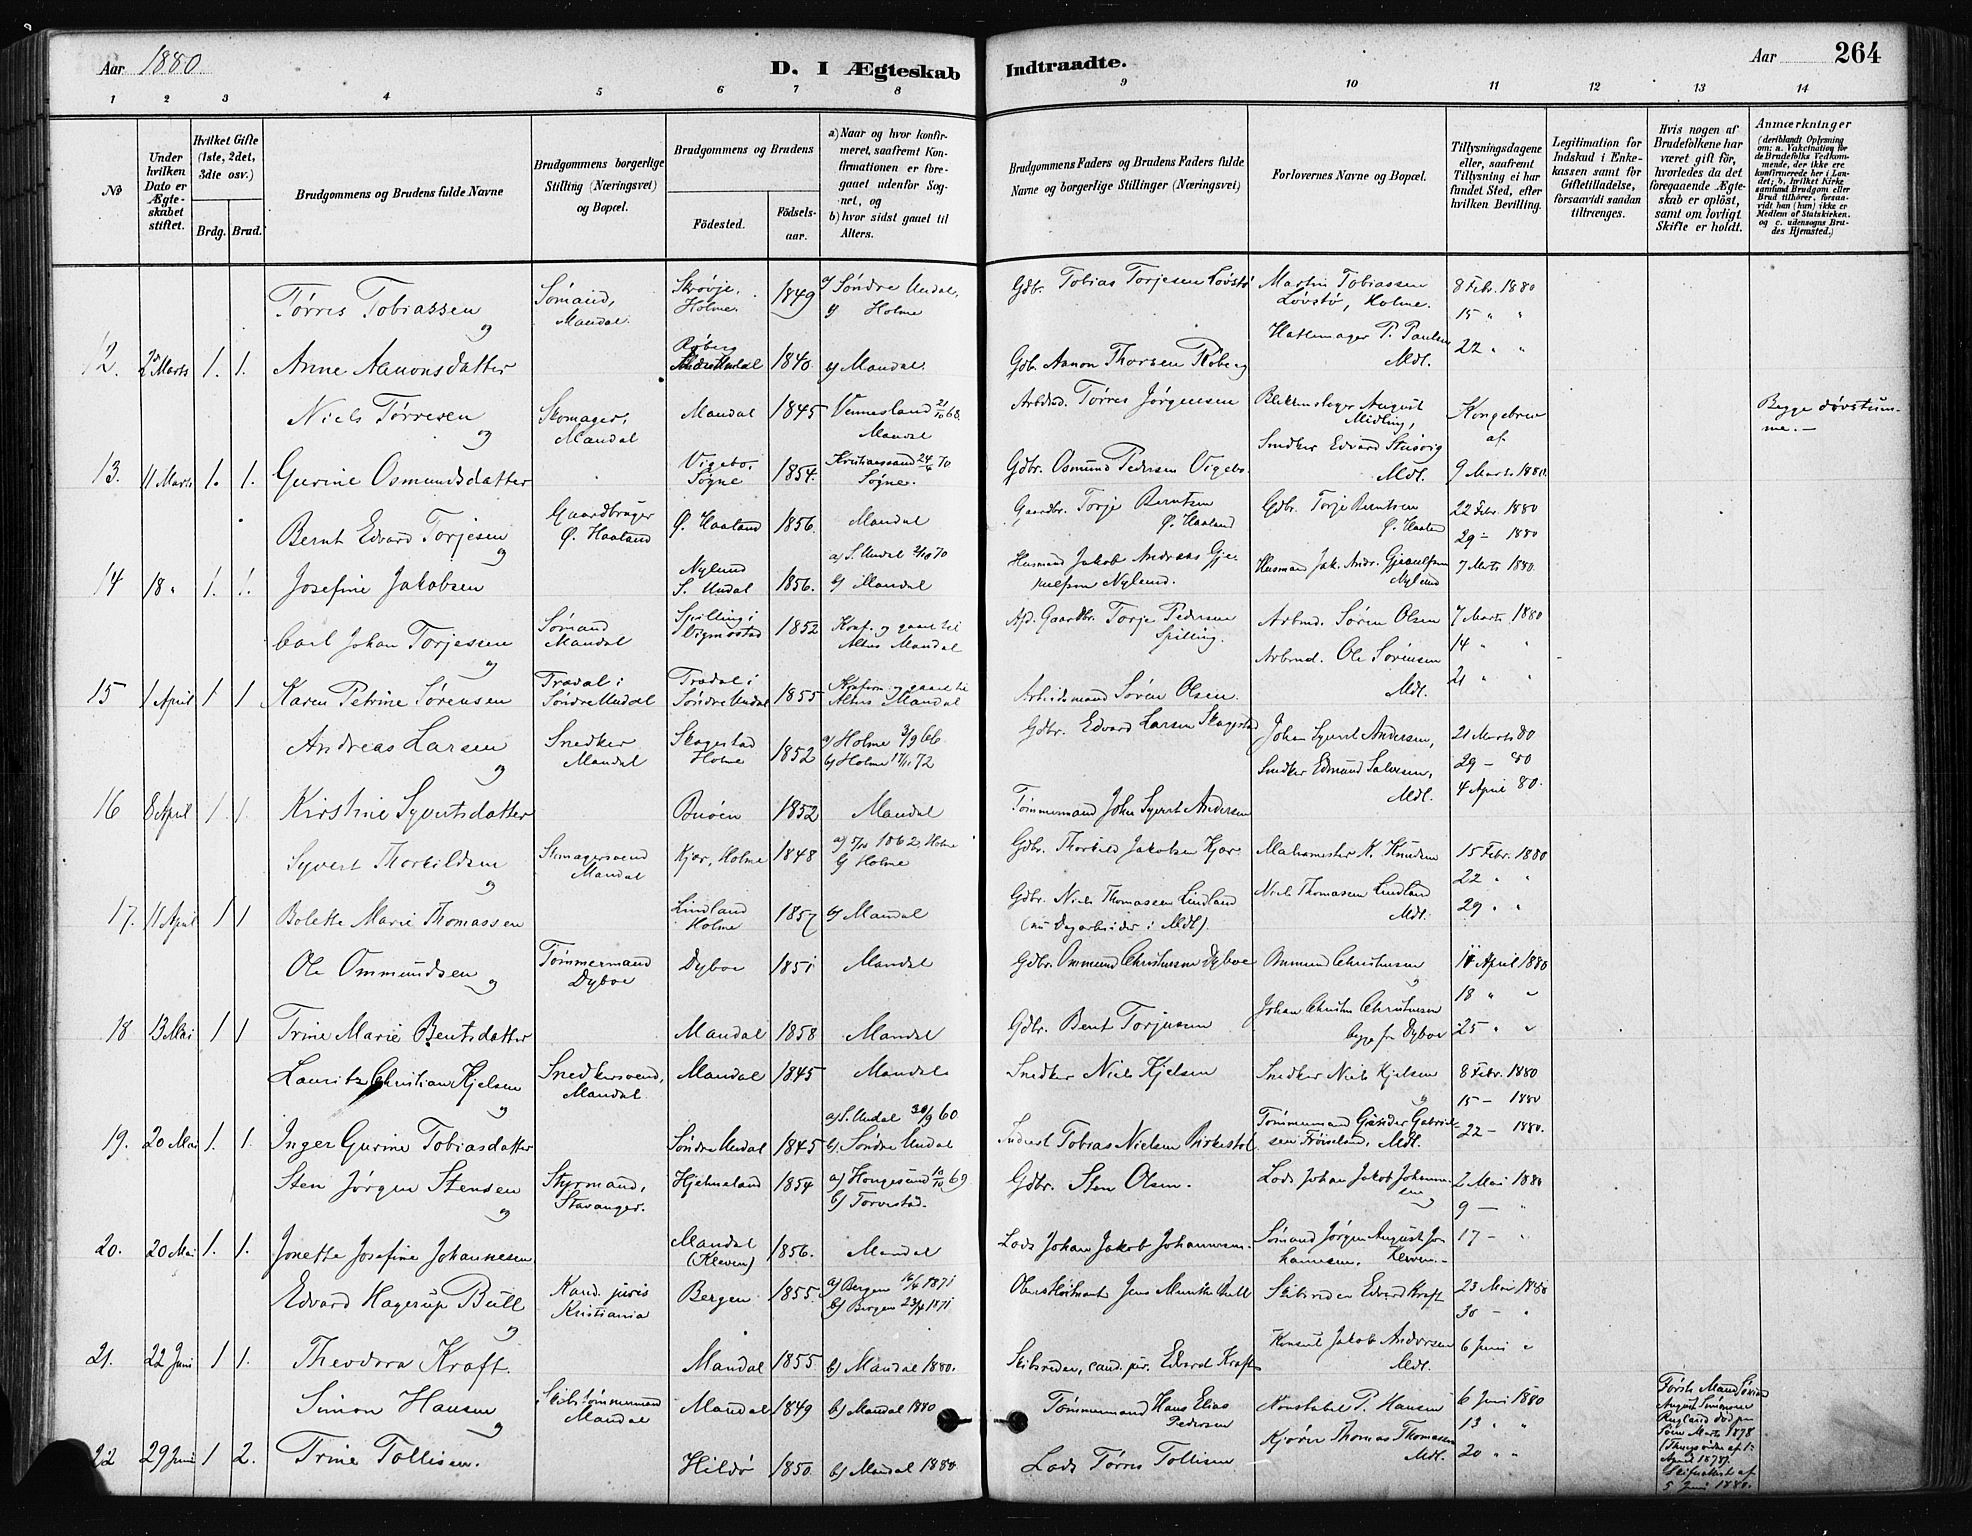 Aar 1880
D. I Ægteskab Indtraadte.
Aar 264
1 2 3 4 5 6 7 8 9 10 11 12 13 14
No
Under hvilken Dato er Ægteskabet stiftet.
Hvilket Gifte (1ste, 2det, 3die osv.)
Brdg. Brud.
Brudgommens og Brudens fulde Navne
Brudgommens borgerlige Stilling (Næringsvei) og Bopæl.
Brudgommens og Brudens
Födested. Födsels-aar.
a) Naar og hvor konfirmeret, saafremt Konfirmationen er foregaaet udenfor Sognet, og
b) hvor sidst gaaet til Alters.
Brudgommens Faders og Brudens Faders fulde Navne og borgerlige Stillinger (Næringsvei)
Forlovernes Navne og Bopæl.
Tillysningsdagene eller, saafremt Tillysning ei har fundet Sted, efter hvilken Bevilling.
Legitimation for Indskud i Enkekassen samt for Giftetilladelse, forsaavidt saadan tiltrænges.
Hvis nogen af Brudefolkene har været gift för, hvorledes da det foregaaende Ægteskab er oplöst, samt om lovligt Skifte er holdt.
Anmærkninger
(deriblandt Oplysning om: a. Vakcination for de Brudefolks Vedkommende, der ikke ere konfirmerede her i Landet; b. hvilket Kirkesamfund Brudgom eller Brud tilhörer, forsaavidt han (hun) ikke er Medlem af Statskirken, og c. udensogns Brudes Hjemsted.)
Tørris Tobiassen Sømand, Mandal. Skrøvje, Holme. 1849 a) Søndre Undal, b) Holme Gdb. Tobias Torjesen Løvstø Martin Tobiassen Løvstø, Holme. 8 Febr. 1880
og 15 " "
12. Marts 1. 1. Anne Aanonsdatter Røberg 1840. b) Mandal. Gdb. Aanon Thorsen Røberg Hattemager P. Paulsen Mdl. 22 " "
Niels Tørresen Skomager, Mandal Mandal 1845 Vennesland 21/10 68. Mandal Arbdsmd. Tørres Jørgensen Blikkenslager August Midling, Kongebrev af Begge døvstumme.—
og
13. 11 Marts 1. 1. Gurine Osmundsdatter Vigebo, Søgne 1854. Kristianssand 24/4 70 Søgne. Gdbr. Osmund Pedersen Vigebo Snedker Edvard Mdl. 9 Marts 1880.
Bernt Edvard Torjesen Gaardbruger Ø. Haaland Ø. Haaland 1856. Mandal Gaardbr. Torje Berntsen Ø. Haaland Gdbr. Torje Berntsen Ø. Haaland 22 Febr. 1880
og 29 — 1880
14 18 " 1. 1. Josefine Jakobsen Nylund S. Undal 1856. a) S. Undal 2/10 70 b) Mandal Husmand Jakob Andreas Gjeruldsen Nylund. Husmand Jak. Andr. Gjeruldsen Nylund 7 Marts 1880.
Carl Johan Torjesen Sømand Mandal Spilling i Vigmostad 1852 Konf. og gaaet til Alters Mandal Afd. Gaardbr. Torje Pedersen Spilling. Arbmd. Søren Olsen 7 Marts 1880
og 14 " "
15 1 April 1 1 Karen Petrine Sørensen Trædal i Søndre Undal Trædal i Søndre Undal 1855 Konfirm. og gaaet til Alters Mandal Arbeidsmand Søren Olsen. Arbmd. Ole Sørensen Mdl. 21 " "
Andreas Larsen Snedker Mandal Skagestad Holme 1852 a) Holme 3/9 66 b) Holme 17/11 72 Gdbr. Edvard Larsen Skagestad Johan Syvert Andersen, 21 Marts 80
og 29 — 80
16 8 April 1 1. Kirstine Syvertsdatter Buøen 1852 Mandal Tømmermand John Syvert Andersen Snedker Edmund Salvesen, Mdl. 4 April 80.
Syvert Thorkildsen Skomagersvend Mandal Kjær, Holme 1848 1862, Holme b) Holme Gdbr. Thorkild Jakobsen Kjær. K. Knudsen 15 Febr. 1880
og 22 " "
17. 11 April 1 1 Bolette Marie Thomassen Lindland Holme 1857 b) Mandal Gdbr. Niels Thomassen Lindland (nu Dagarbeider i Mdl). Niels Thomassen Lindland Mdl. 29 " "
Ole Ommundsen Tømmermand Dyboe Dyboe 1851 Mandal Gdbr. Ommund Christensen Dyboe Ommund Christensen 11 April 1880
og og 18 " "
18 13 Mai 1 1 Trine Marie Bentsdatter Mandal 1858 Mandal Gdbr. Bent Torjusen Johan Christen Christensen begge fra Dyboe 25 " "
Lauritz Christian Kjelsen Snedkersvend, Mandal. Mandal 1845 Mandal Snedker Niels Kjelsen Snedker Niels Kjelsen 8 Febr. 1880
og og 15 — 1880
19. 20 Mai 1. 1. Inger Gurine Tobiasdatter Søndre Undal 1845 a) S. Undal 30/9 60 b) Søndre Undal Tobias Nielsen Birkestøl Tømmermand Gabrielsen Mdl. 22 — 1880.
Sten Jørgen Stensen Styrmand, Stavanger. Hjelmeland 1854 a) Haugesund 10/10 69 b) Torvestad. Gdbr. Sten Olsen. Lods Johan Jakob Johannesen 2 Mai 1880
og og 9 — "
20. 20 Mai 1. 1. Jonette Josefine Johannesen Mandal (Kleven) 1856. Mandal Lods Johan Jakob Johannesen. Sømand Jørgen August Johannesen, Kleven. 17 — "
Edvard Hagerup Bull Kand. juris Kristiania Bergen 1855 a) Bergen 16/4 1871 b) Bergen 23/4 1871 Jens Munthe Bull Skibsreder Edvard Kraft 23 Mai 1880
og 30 — "
21. 22 Juni 1 1. Theodora Kraft. Mandal 1855 b) Mandal 1880. Skibsreder, cand. jur. Edvard Kraft Konsul Jakob Andorsen Mdl. 6 Juni "
Simon Hansen Skibstømmermand Mandal Mandal 1849 b) Mandal 1880 Tømmermand Hans Elias Pedersen Konstabel P. Hansen 6 Juni 1880
og 13 " "
22 29 Juni 1 2. Trine Tollisen. Hildø 1850. b) Mandal 1880. Lods Tørres Tollisen Kjører Thomas Thomassen Mdl. 20 " "
Første Mand August Simonsen død Marts 1878 April 1878. 5 Juni 1880.